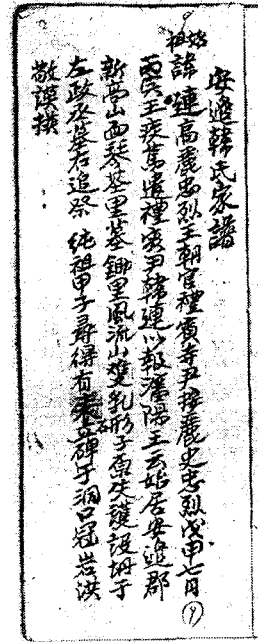 安邊韓氏家譜
始祖 諱 連高麗忠烈王朝官禮賓寺尹按麗史忠烈戊申七月
丙戌王疾篤遣禮賓尹韓連以報瀋陽王云始居安邊郡
新高山面琴基里墓鋤里風流山雙乳形子原失護設壇于
左政丞墓右追祭 純祖甲子尋得有立碑于洞口冠岩洪
敬謨撰
9